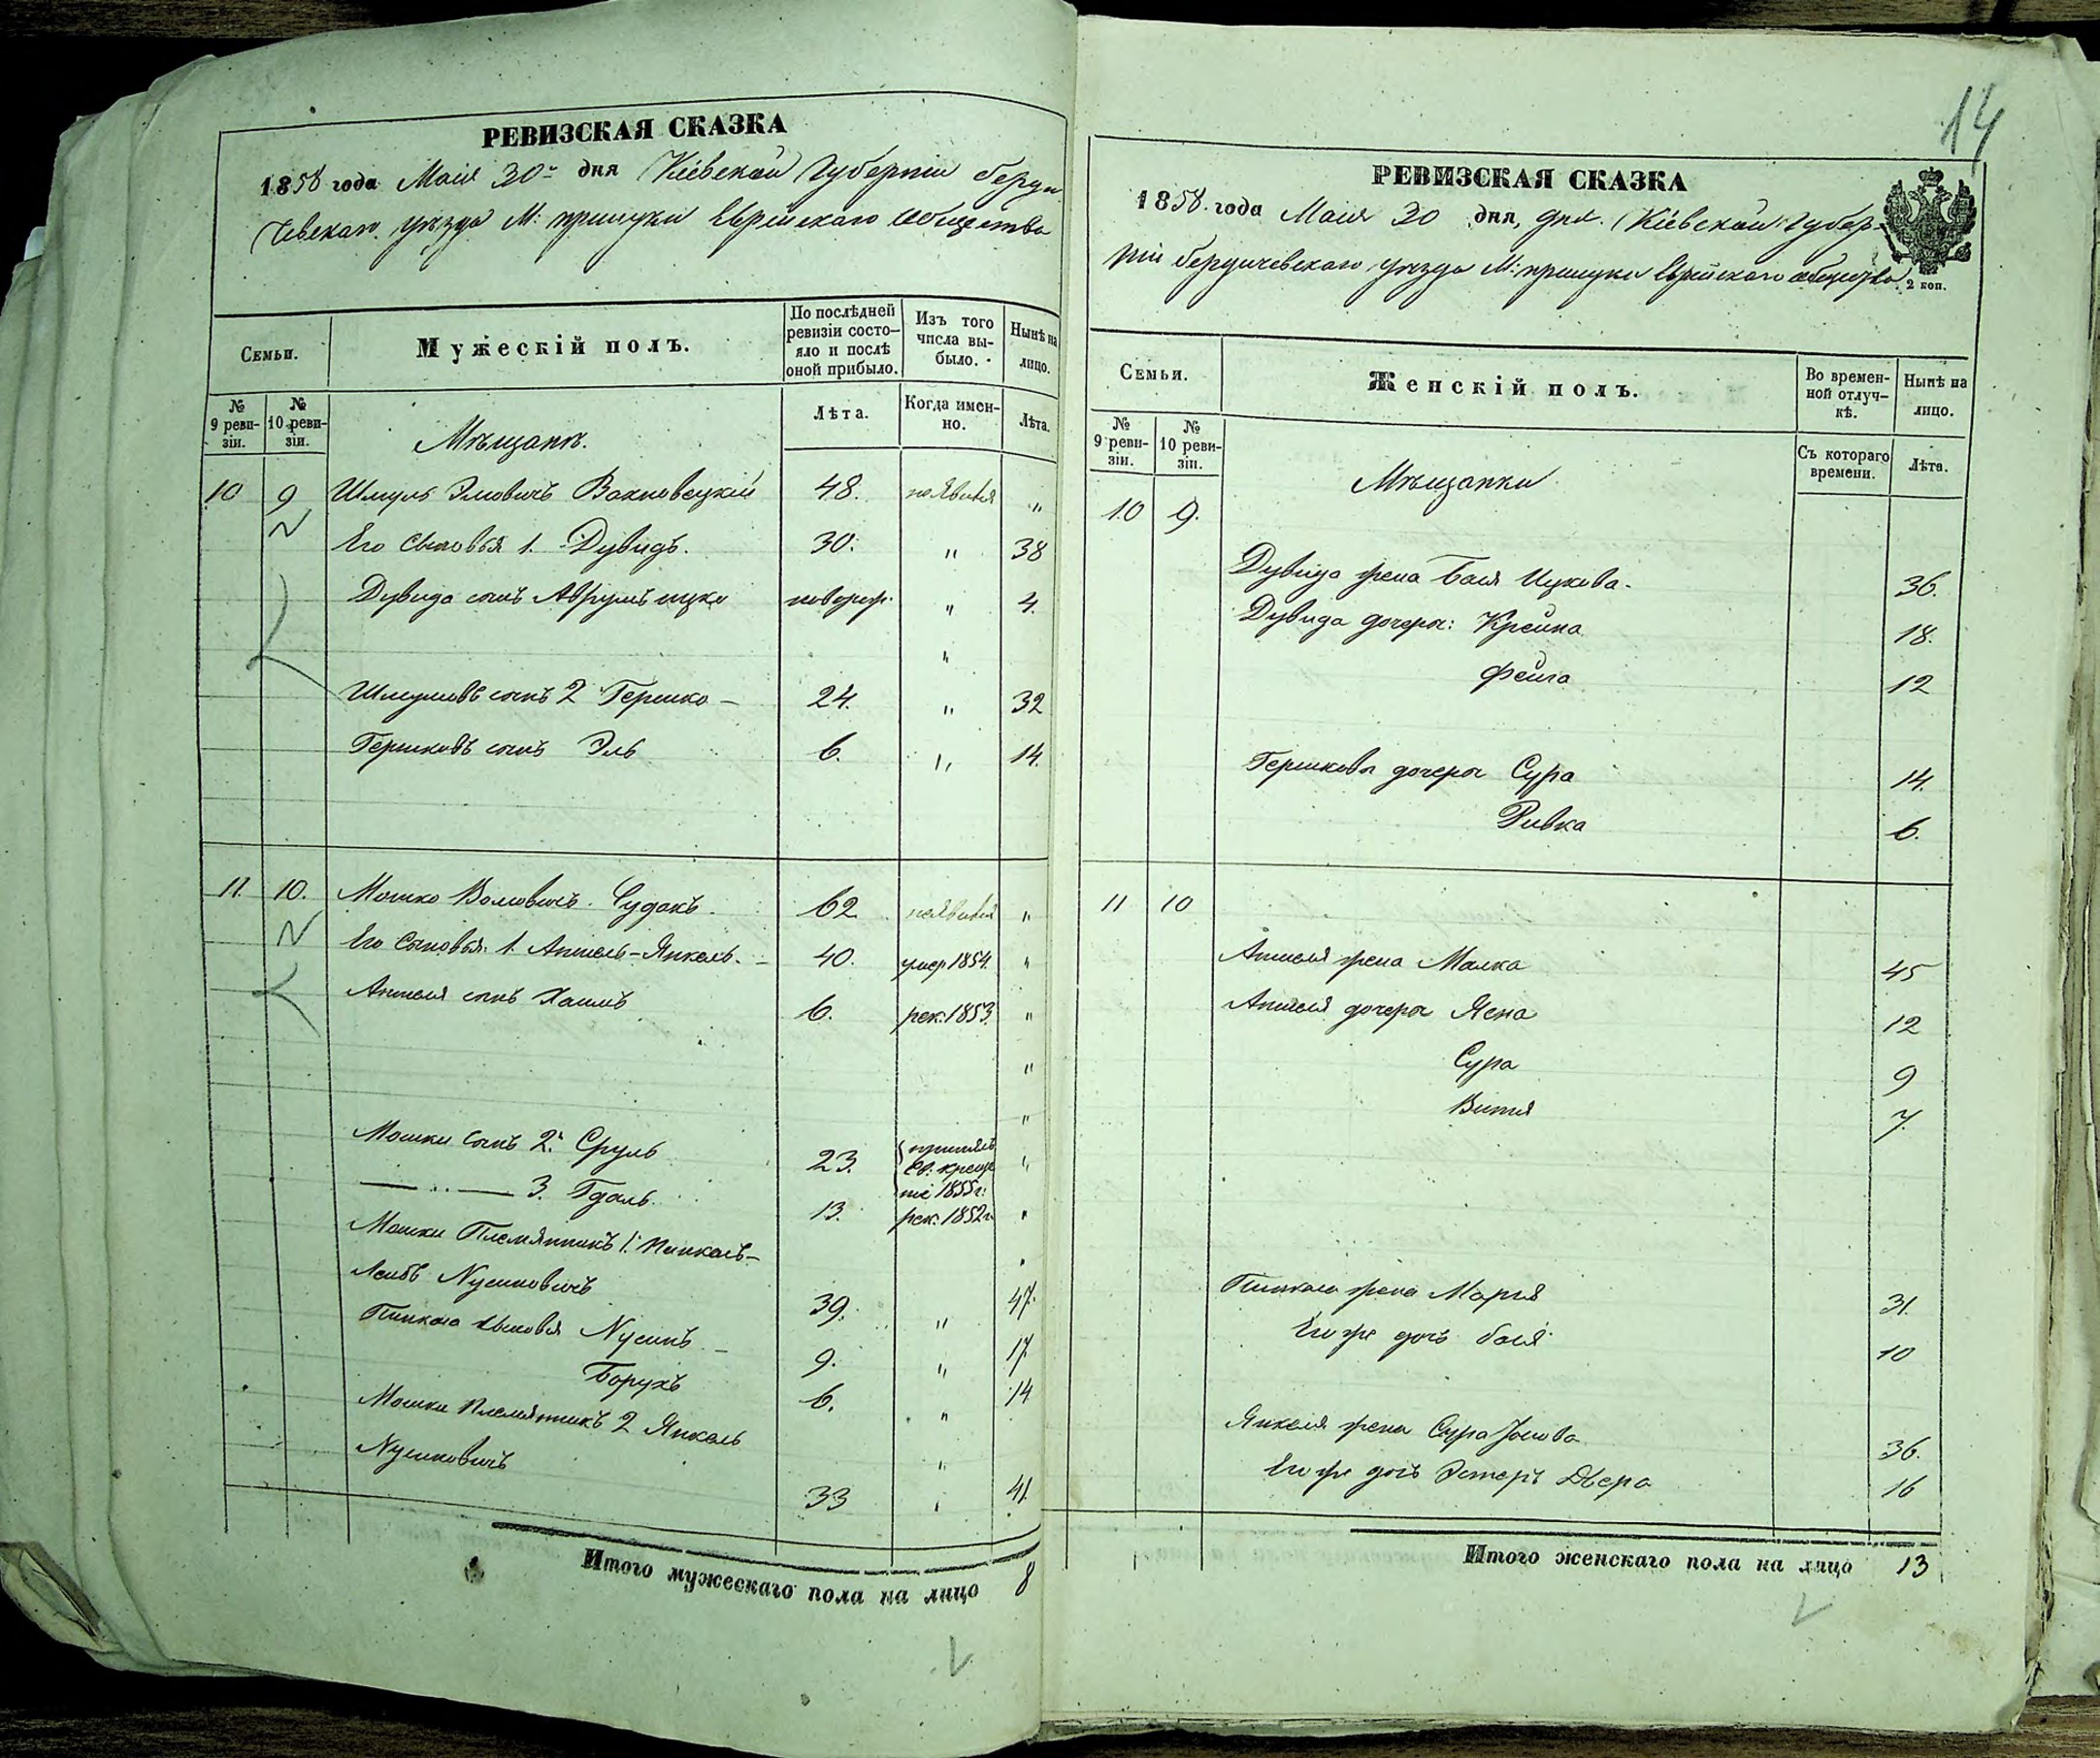 РЕВИЗСКАЯ СКАЗКА
1858 года Маія 30 дня Кіевской Губерніи Берди
чевскаго уѣзда М: прилуки Еврейскаго Общества
Семьи.
Мужескій полъ.
По послѣдней ревизіи состояло и послѣ оной прибыло.
Изъ того числа выбыло.
Нынѣ на лицо.
№ 9 ревизіи.
№ 10 ревизіи.
Мѣщане.
Лѣта.
Когда именно.
Лѣта.
10 9 Шмуль Эльовичъ Вахновецкій 48. "
Его Сыновья 1. Дувидъ. 30. " 38
Дувида сынъ Аврумъ ицко новорож. " 4.
"
Шмулевъ сынъ 2 Гершко – 24. " 32
Гершковъ сынъ Эль 6. " 14.
11. 10. Мошко Волковичъ Судакъ. 62 "
Его Сыновья: 1. Аншель-Янкель. – 40. умер 1854. "
Аншеля сынъ Хаимъ 6. рек: 1853. "
"
"
Мошки сынъ 2. Сруль 23. принялъ Св. креще ніе 1855 г: "
— " — 3. Гдаль. 13. рек. 1852 г. "
Мошки Племянникъ 1. Пинкасъ-
Лейбъ Нусиновичъ 39. " 47.
Пинкаса сыновья Нусинъ – 9. " 17.
Борухъ 6. " 14
Мошки племянникъ 2 Янкель
Нусиновичъ 33 " 41.
Итого мужескаго пола на лицо 8
14
РЕВИЗСКАЯ СКАЗКА
1858. года Маія 30 дня, дня. Кіевской Губер-
ніи Бердичевскаго уѣзда М: прилуки Еврейскаго общества. 2 коп.
Семьи.
Женскій полъ.
Во временной отлучкѣ.
Нынѣ на лицо.
№ 9 ревизіи.
№ 10 ревизіи.
Мѣщанки
Съ котораго времени.
Лѣта.
10 9.
Дувида жена Бася Ицкова. 36.
Дувида дочери: Крейна 18.
Фейга 12
Гершковы дочери Сура 14.
Ривка 6.
11 10
Аншеля жена Малка 45
Аншеля дочери Яена 12
Сура 9
Витя 7.
Пинкаса жена Марья 31.
Его же дочь Бася 10
Янкеля жена Сура Іосьова 36.
Его же дочь Эстеръ Двера 16
Итого женскаго пола на лицо 13